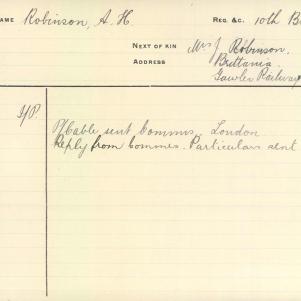 NAME Robinson, A. H. REG. &C. 10th B
NEXT OF KIN Mrs J Robinson.
ADDRESS Brittania.
Gawler Railway
P/Cable sent Comms. London
Reply from Commes. Particulars sent